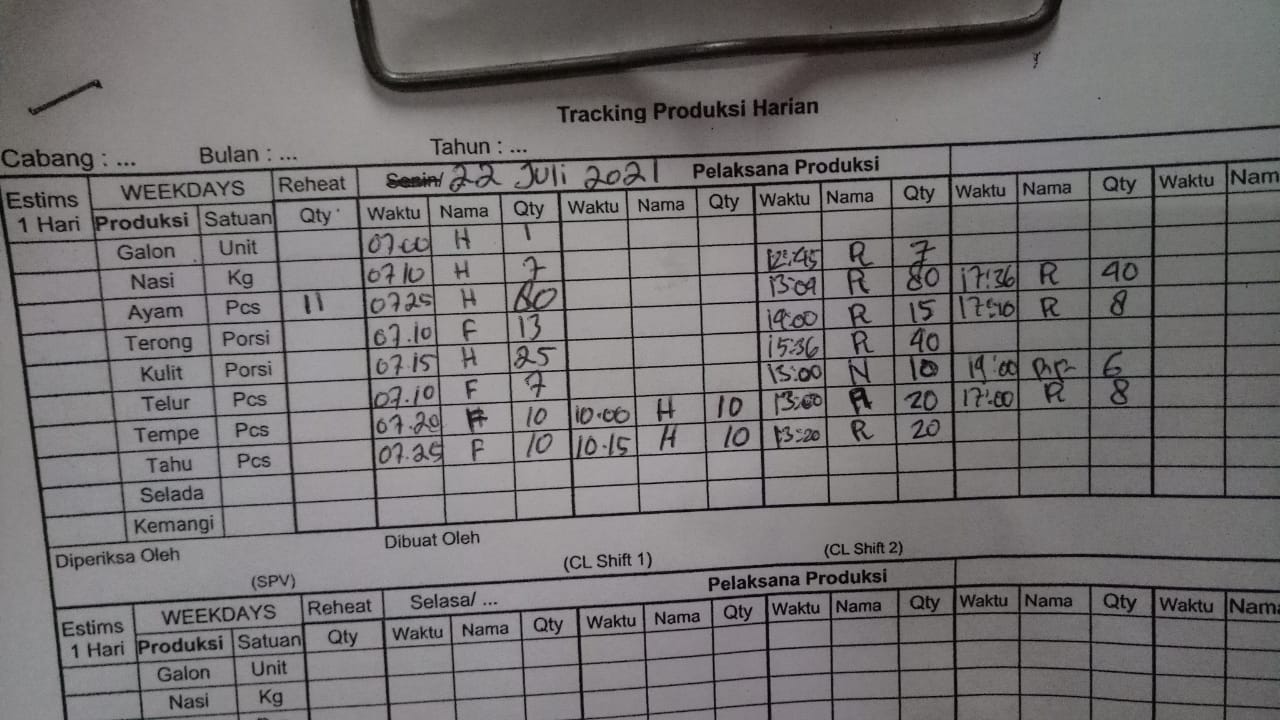 Tracking Produksi Harian
Cabang : ... Bulan : ... Tahun : ...
Estims WEEKDAYS Reheat Senin/ 22 Juli 2021 Pelaksana Produksi
1 Hari Produksi Satuan Qty Waktu Nama Qty Waktu Nama Qty Waktu Nama Qty Waktu Nama Qty Waktu Nam
Galon Unit 07.00 H 1
Nasi Kg 07.10 H 7 12:45 R 7
Ayam Pcs 11 07.25 H 80 13:09 R 80 17:36 R 40
Terong Porsi 07.10 F 13 14:00 R 15 R 8
Kulit Porsi 07.15 H 25 15:36 R 40
Telur Pcs 07.10 F 7 N 10 19:00 6
Tempe Pcs 07.20 10 10.00 H 10 13:00 20 17:00 R 8
Tahu Pcs 07.25 F 10 10.15 H 10 13:20 R 20
Selada
Kemangi
Diperiksa Oleh Dibuat Oleh
(SPV) (CL Shift 1) (CL Shift 2)
Estims WEEKDAYS Reheat Selasa/ ... Pelaksana Produksi
1 Hari Produksi Satuan Qty Waktu Nama Qty Waktu Nama Qty Waktu Nama Qty Waktu Nama Qty Waktu Nam
Galon Unit
Nasi Kg